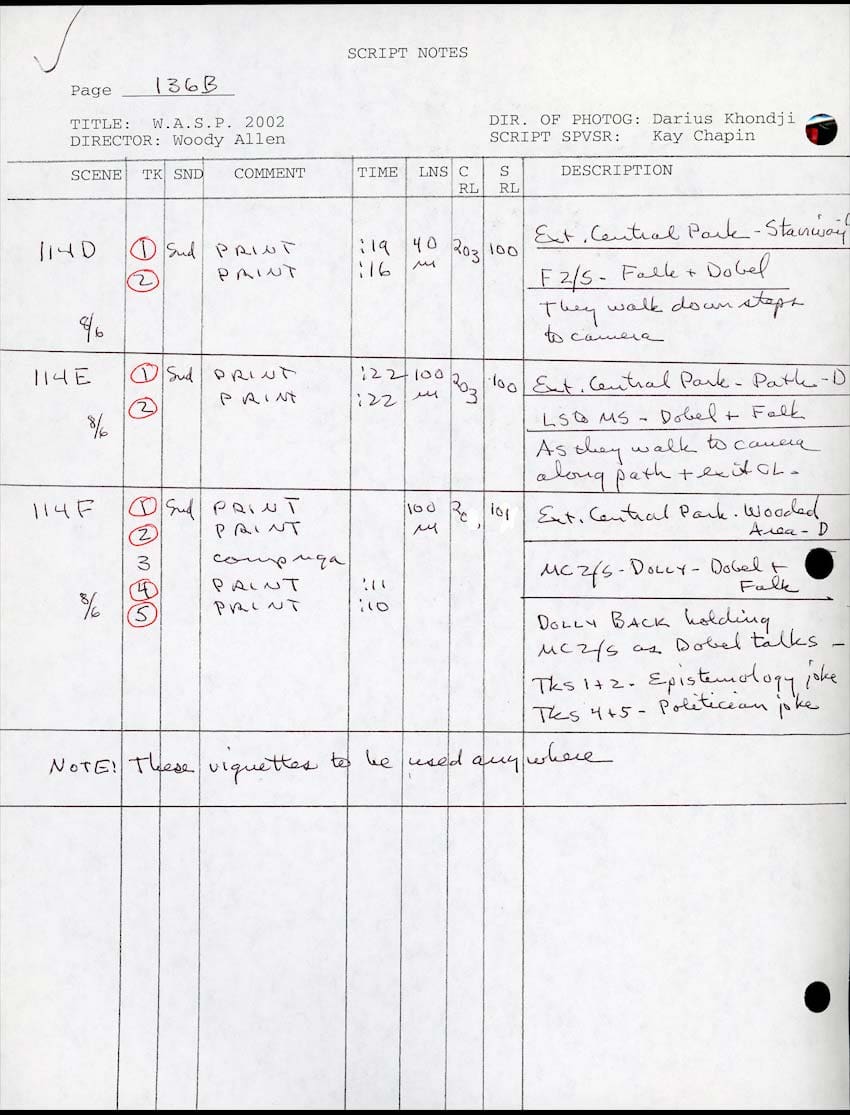 SCRIPT NOTES
Page 136B
TITLE: W.A.S.P. 2002
DIRECTOR: Woody Allen
DIR. OF PHOTOG: Darius Khondji
SCRIPT SPVSR: Kay Chapin
SCENE TK SND COMMENT TIME LNS C RL S RL DESCRIPTION
114D 1 Snd PRINT :19 40 203 100 Ext. Central Park - Stairway
2 PRINT :16 m F 2/S - Falk + Dobel
They walk down steps
8/6 to camera
114E 1 Snd PRINT :22 100 203 100 Ext. Central Park - Path - D
2 PRINT :22 m MS - Dobel + Falk
8/6 As they walk to camera
along path + exit CL -
114F 1 Snd PRINT 100 101 Ext. Central Park. Wooded
2 PRINT m Area - D
3
4 PRINT :11 MC 2/S - DOLLY - Dobel +
8/6 5 PRINT :10 Falk
DOLLY BACK holding
MC 2/S as Dobel talks -
Tks 1+2 - Epistemology joke
Tks 4+5 - Politician joke
NOTE! These vignettes to be used anywhere